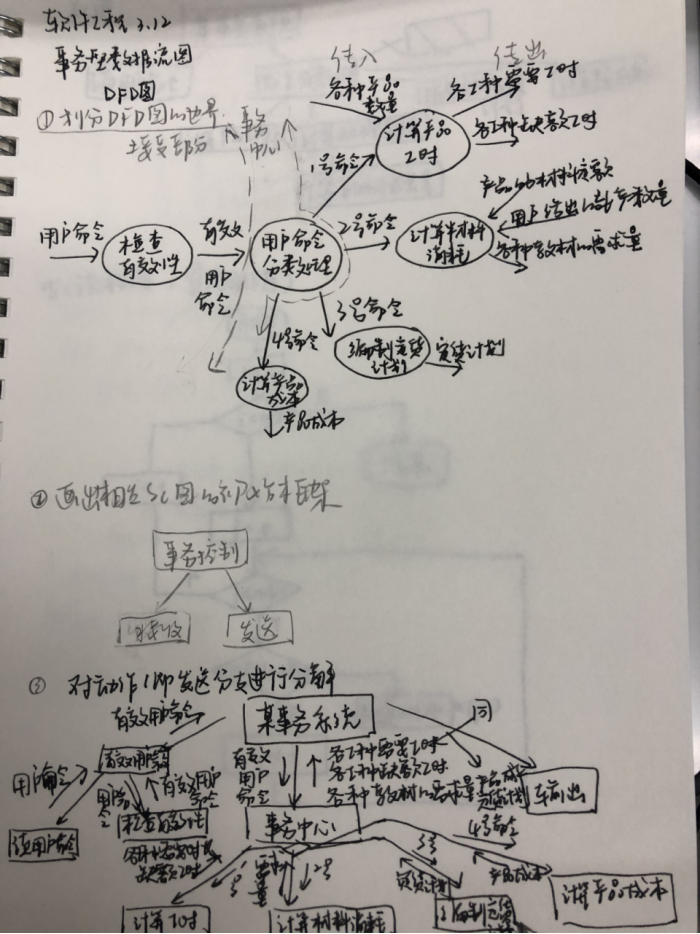 软件工程 3.12
事务型数据流图
DFD图
①划分DFD图的边界
接受部分
事务
中心
传入
传出
各种产品
数量
各工种需要工时
计算产品
工时
各工种缺/剩工时
1号命令
用户命令
检查
有效性
有效
用户
命令
用户命令
分类处理
2号命令
计算材料
消耗
产品的材料定额
用户给出的计产数量
各种材料的需求量
3号命令
编制定货
计划
定货计划
4号命令
计算产品
成本
产品成本
②画出相应SC图的初始框架
事务控制
接收
发送
③ 对动作(即发送分支进行分解
有效用户命令
某事务系统
同
用户命令
有效用户
命令
读用户命令
检查有效性
有效
用户
命令
各工种需要工时
产品成本
定货计划
输出
事务中心
1号
2号
3号
4号命令
定货计划
产品成本
计算工时
计算材料消耗
编制定货
计算产品成本